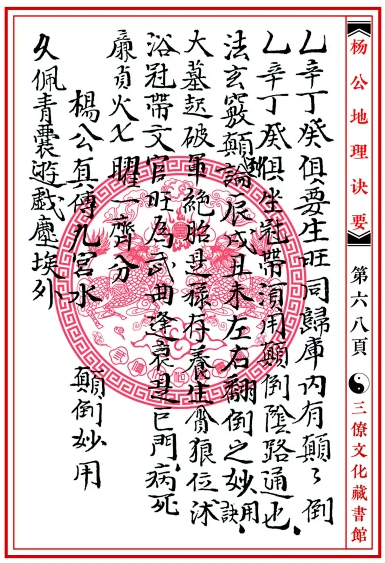 杨公地理诀要
第六八頁
三僚文化藏書館
乙辛丁癸俱要生旺同歸庫內有顛々倒
乙辛丁癸俱坐冠帶須用顛倒陰路通也
法玄竅顛倒論辰戌丑未左右翻倒之妙用訣
大墓起破軍絕昭是祿存養生貪狼位沭
浴冠帶文官旺為武曲逢衰是巨門病死
廉貞火七曜一齊分
楊公真傳九宮水 顛倒妙用
久佩青囊遊戲塵埃外